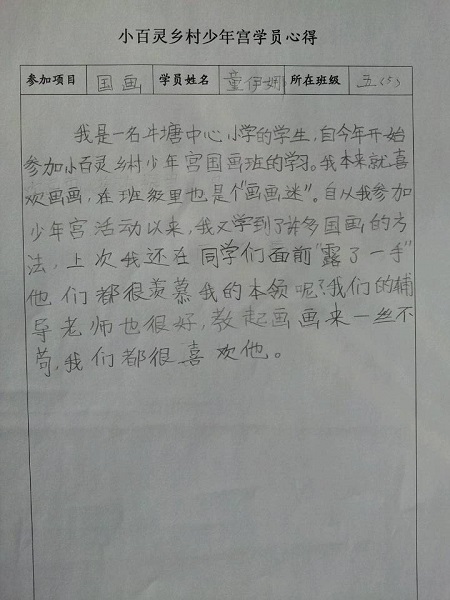 小百灵乡村少年宫学员心得
参加项目 国画 学员姓名 童伊娜 所在班级 五(5)
我是一名牛塘中心小学的学生,自今年开始
参加小百灵乡村少年宫国画班的学习。我本来就喜
欢画画,在班级里也是个“画画迷”。自从我参加
少年宫活动以来,我又学到了许多国画的方
法,上次我还在同学们面前“露了一手”
他们都很羡慕我的本领呢!我们的辅
导老师也很好,教起画画来一丝不
苟,我们都很喜欢他。